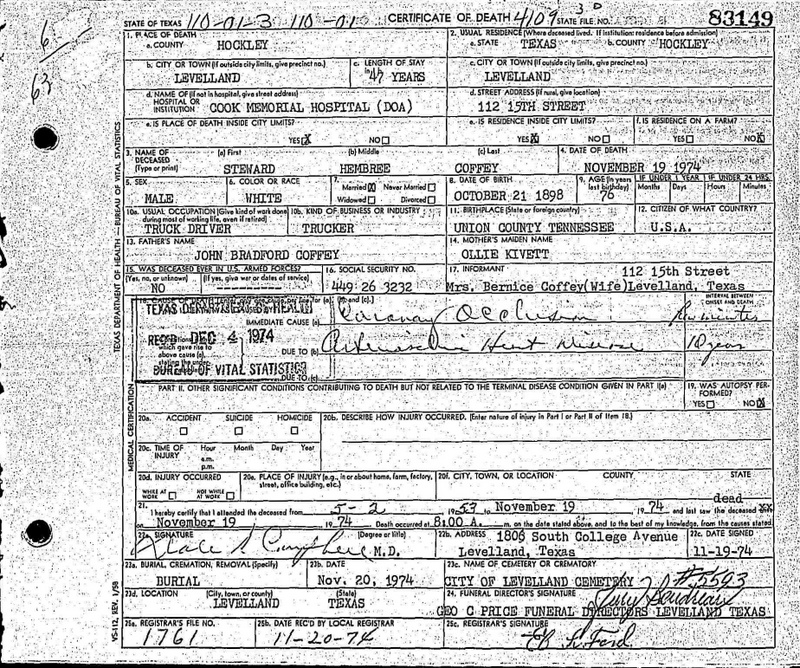 STATE OF TEXAS 110-01-3 110-01 CERTIFICATE OF DEATH 4109 STATE FILE NO. 83149
1. PLACE OF DEATH
a. COUNTY HOCKLEY
2. USUAL RESIDENCE (Where deceased lived. If institution: residence before admission)
a. STATE TEXAS b. COUNTY HOCKLEY
b. CITY OR TOWN (If outside city limits, give precinct no.)
LEVELLAND
c. LENGTH OF STAY
47 YEARS
c. CITY OR TOWN (If outside city limits, give precinct no.)
LEVELLAND
d. NAME OF (If not in hospital, give street address)
HOSPITAL OR
INSTITUTION COOK MEMORIAL HOSPITAL (DOA)
d. STREET ADDRESS (If rural, give location)
112 15TH STREET
e. IS PLACE OF DEATH INSIDE CITY LIMITS?
YES X NO
e. IS RESIDENCE INSIDE CITY LIMITS?
YES X NO
f. IS RESIDENCE ON A FARM?
YES NO X
3. NAME OF DECEASED (Type or print)
(a) First (b) Middle (c) Last
STEWARD HEMBREE COFFEY
4. DATE OF DEATH
NOVEMBER 19 1974
5. SEX
MALE
6. COLOR OR RACE
WHITE
7. Married X Never Married
Widowed Divorced
8. DATE OF BIRTH
OCTOBER 21 1898
9. AGE (In years last birthday)
76
IF UNDER 1 YEAR IF UNDER 24 HRS.
Months Days Hours Minutes
10a. USUAL OCCUPATION (Give kind of work done during most of working life, even if retired)
TRUCK DRIVER
10b. KIND OF BUSINESS OR INDUSTRY
TRUCKER
11. BIRTHPLACE (State or foreign country)
UNION COUNTY TENNESSEE
12. CITIZEN OF WHAT COUNTRY?
U.S.A.
13. FATHER'S NAME
JOHN BRADFORD COFFEY
14. MOTHER'S MAIDEN NAME
OLLIE KIVETT
15. WAS DECEASED EVER IN U.S. ARMED FORCES?
(Yes, no, or unknown) (If yes, give war or dates of service)
NO
16. SOCIAL SECURITY NO.
449 26 3232
17. INFORMANT 112 15th Street
Mrs. Bernice Coffey(Wife)Levelland, Texas
18. CAUSE OF DEATH
INTERVAL BETWEEN ONSET AND DEATH
TEXAS DEPARTMENT OF HEALTH
REC'D DEC 4 1974
BUREAU OF VITAL STATISTICS
IMMEDIATE CAUSE (a) Coronary Occlusion minutes
which gave rise to above cause (a)
DUE TO (b) Heart Disease 10 years
DUE TO (c)
PART II. OTHER SIGNIFICANT CONDITIONS CONTRIBUTING TO DEATH BUT NOT RELATED TO THE TERMINAL DISEASE CONDITION GIVEN IN PART I(a)
19. WAS AUTOPSY PERFORMED?
YES NO X
20a. ACCIDENT SUICIDE HOMICIDE
20b. DESCRIBE HOW INJURY OCCURRED. (Enter nature of injury in Part I or Part II of item 18.)
20c. TIME OF INJURY Hour Month Day Year
a.m.
p.m.
20d. INJURY OCCURRED
WHILE AT WORK NOT WHILE AT WORK
20e. PLACE OF INJURY (e.g., in or about home, farm, factory, street, office building, etc.)
20f. CITY, TOWN, OR LOCATION COUNTY STATE
21. I hereby certify that I attended the deceased from 5-2 1953 to November 19 1974 and last saw the deceased dead
on November 19 1974 Death occurred at 8:00 A. m. on the date stated above, and to the best of my knowledge, from the causes stated
22a. SIGNATURE (Degree or title)
M.D.
22b. ADDRESS 1805 South College Avenue
Levelland, Texas
22c. DATE SIGNED
11-19-74
23a. BURIAL, CREMATION, REMOVAL (Specify)
BURIAL
23b. DATE
Nov. 20, 1974
23c. NAME OF CEMETERY OR CREMATORY
CITY OF LEVELLAND CEMETERY #5593
23d. LOCATION (City, town, or county) (State)
LEVELLAND TEXAS
24. FUNERAL DIRECTOR'S SIGNATURE
GEO C PRICE FUNERAL DIRECTORS LEVELLAND TEXAS
25a. REGISTRAR'S FILE NO.
1761
25b. DATE REC'D BY LOCAL REGISTRAR
11-20-74
25c. REGISTRAR'S SIGNATURE
TEXAS DEPARTMENT OF HEALTH — BUREAU OF VITAL STATISTICS
MEDICAL CERTIFICATION
VS-112, REV. 1/58